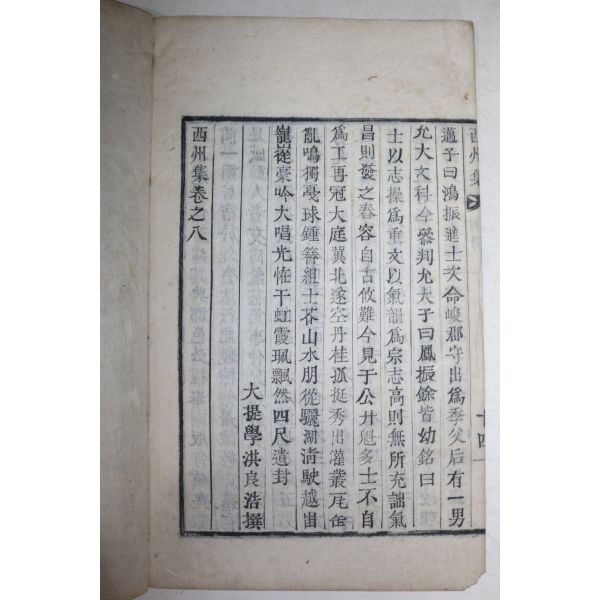 酉州集
十四
適子曰鴻振進士次命峻郡守出爲季父后有一男
允大文科今叅判允大子曰鳳振餘皆幼銘曰
士以志操爲重文以氣韻爲宗志高則無所充詘氣
昌則發之舂容自古攸難今見于公廾魁多士不自
爲工再冠大庭冀北遂空丹桂孤挺秀出灌叢瓦缶
亂鳴獨戞球鍾簪組士芥山水朋從驪湖淸駛越出
巃嵸豪吟大唱光恠干虹霞珮飄然四尺遺封
大提學洪良浩撰
酉州集卷之八